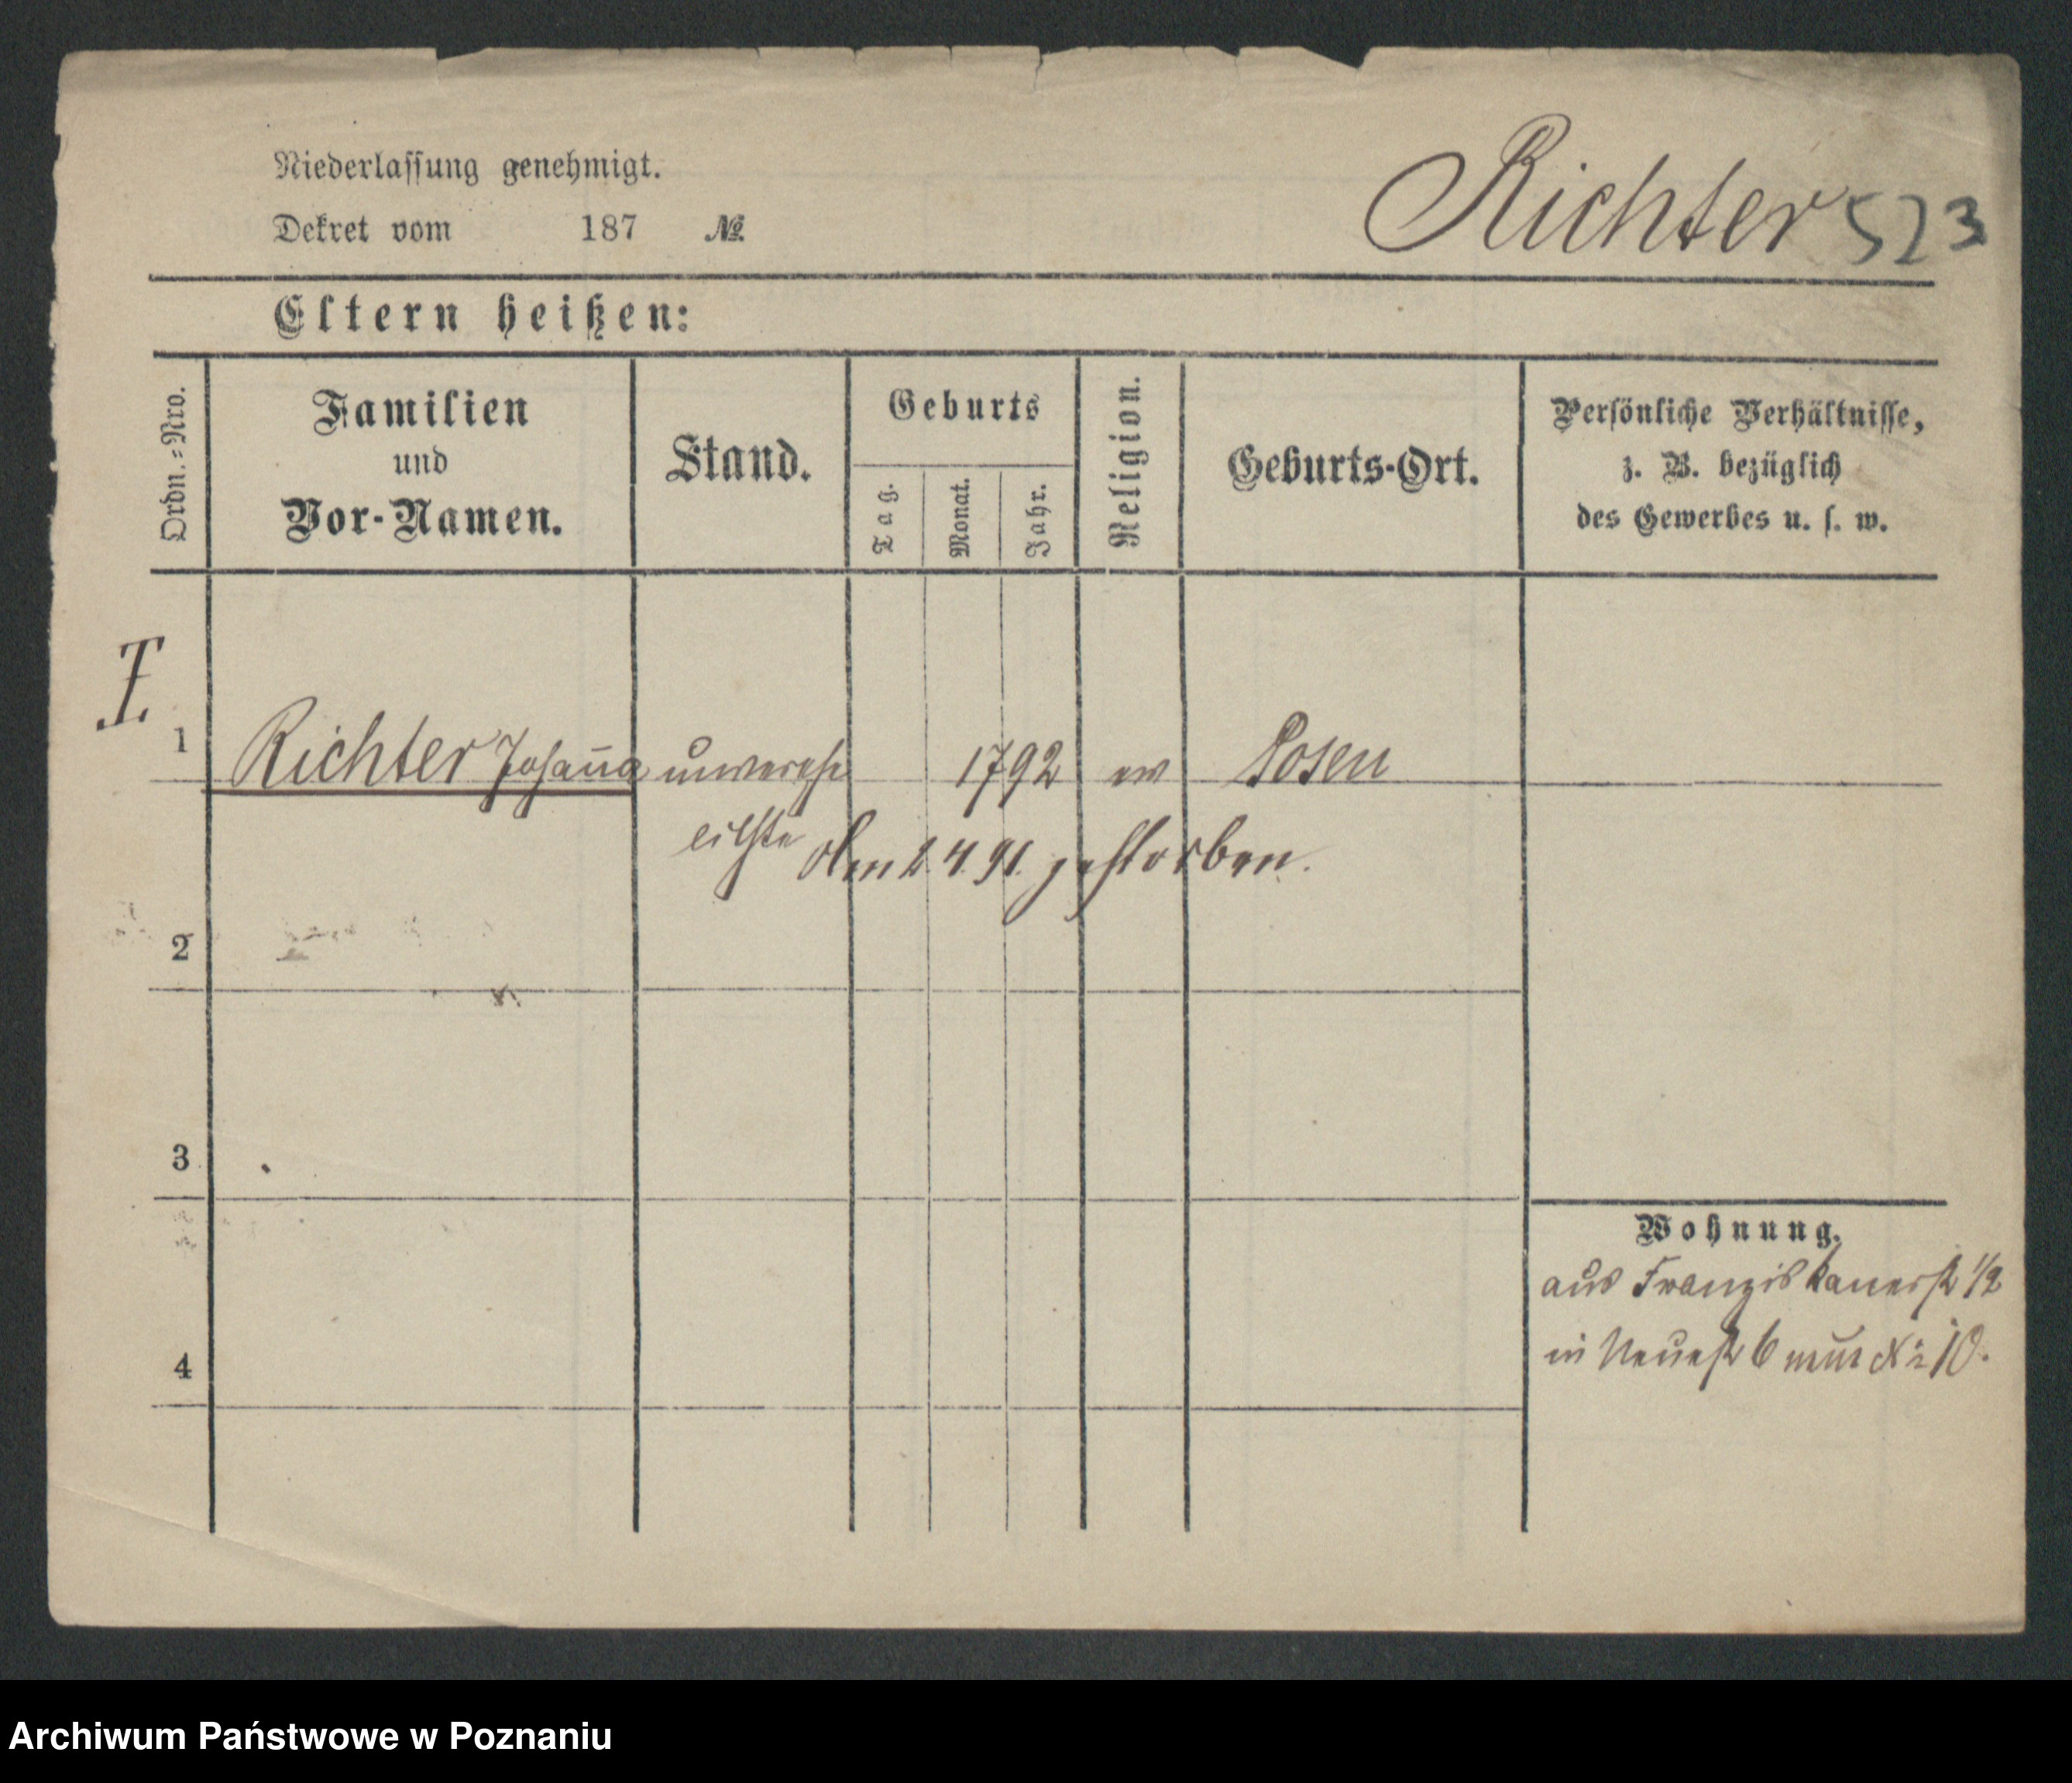 Niederlassung genehmigt.
Dekret vom 187 № Richter 523
Eltern heißen:
Ordn.=Nro.
Familien
und
Vor-Namen.
Stand.
Geburts
Tag.
Monat.
Jahr.
Religion.
Geburts-Ort.
Persönliche Verhältnisse,
z. B. bezüglich
des Gewerbes u. s. w.
I.
1 Richter Johan̄a unvereh 1792 ev Posen
lichte den 2.4.91. gestorben.
2
3
Wohnung.
aus Franziskanerst 1/2
in Neuest 6 nun № 10.
4
Archiwum Państwowe w Poznaniu